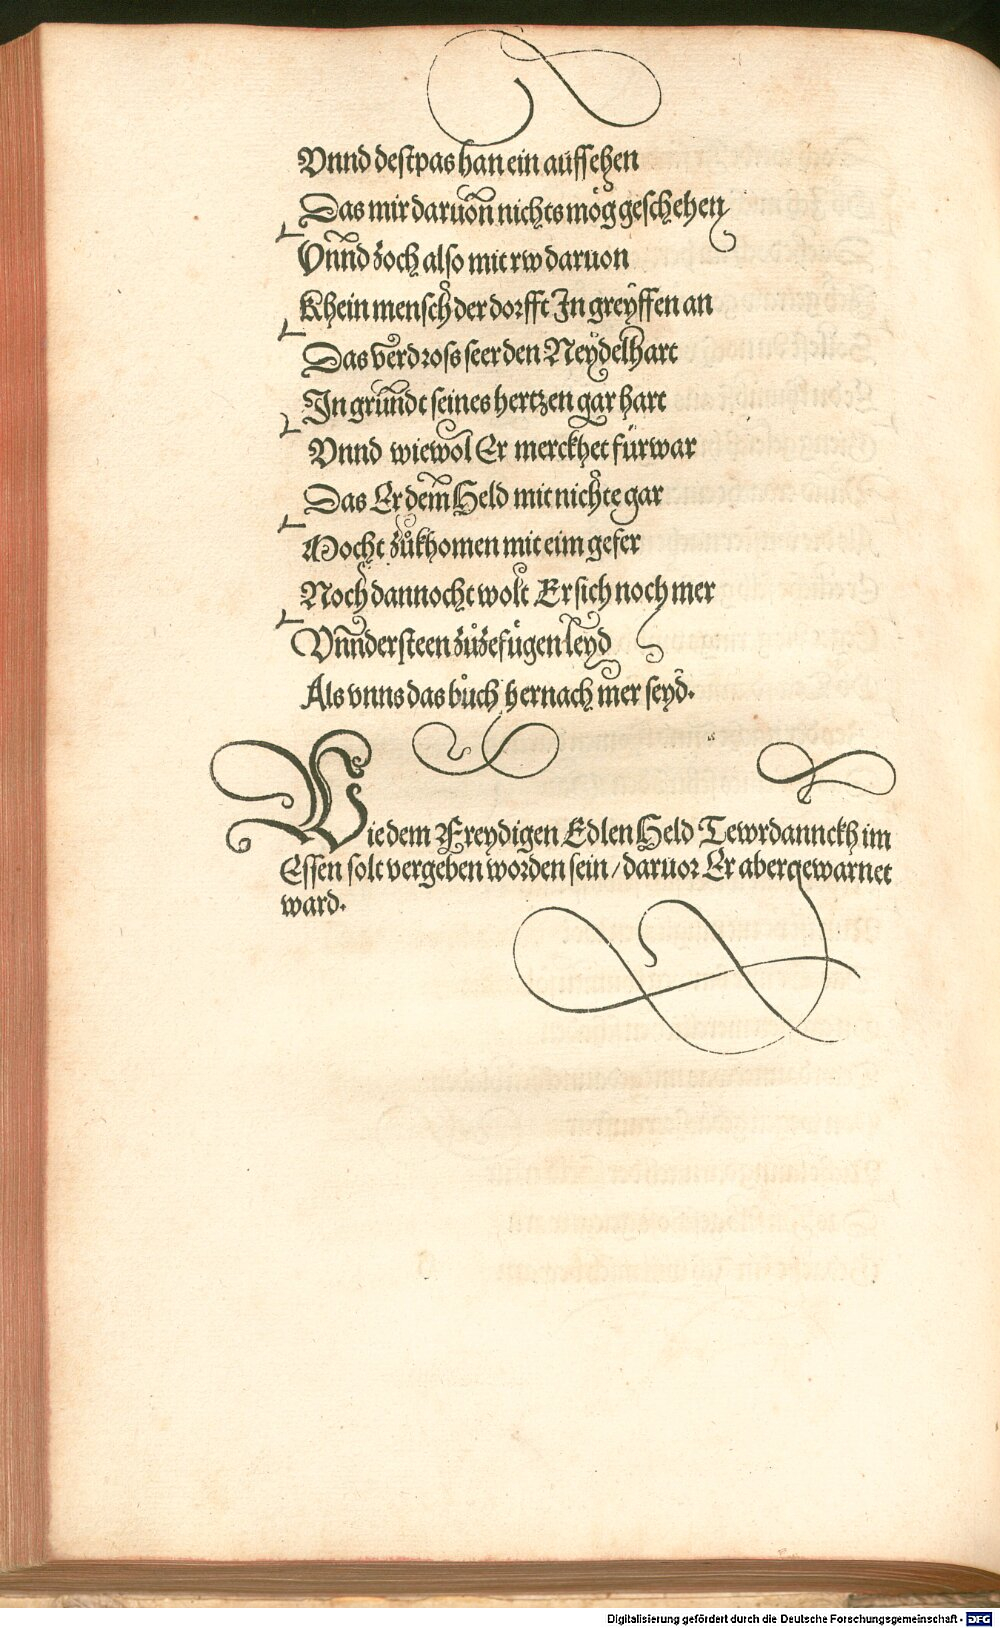 Vnnd destpas han ein auffsehen
Das mir daruon nichts mög geschehen
Vnnd zoch also mit rw daruon
Khein mensch der dorfft In greyffen an
Das verdross seer den Neydelhart
In grundt seines hertzen gar hart
Vnnd wiewol Er merckhet fürwar
Das Er dem Held mit nichte gar
Mocht zůkhomen mit eim gefer
Noch dannocht wolt Er sich noch mer
Vnndersteen zůzefügen leyd
Als vnns das bůch hernach mer seyd.
Wie dem Freydigen Edlen Held Tewrdannckh im
Essen solt vergeben worden sein / daruor Er aber gewarnet
ward.
Digitalisierung gefördert durch die Deutsche Forschungsgemeinschaft - DFG